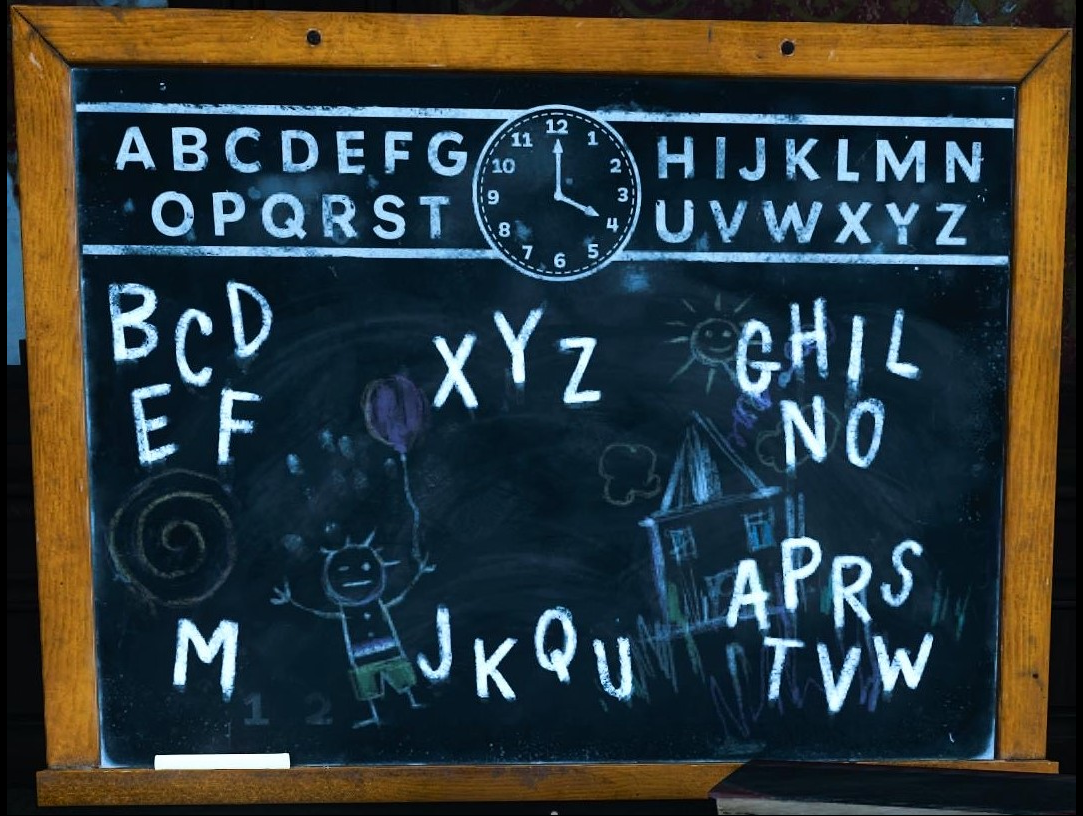 ABCDEFG
OPQRST
12
1
2
3
4
5
6
7
8
9
10
11
HIJKLMN
UVWXYZ
BCD
EF
XYZ
GHIL
NO
M
JKQU
APRS
TVW
1 2